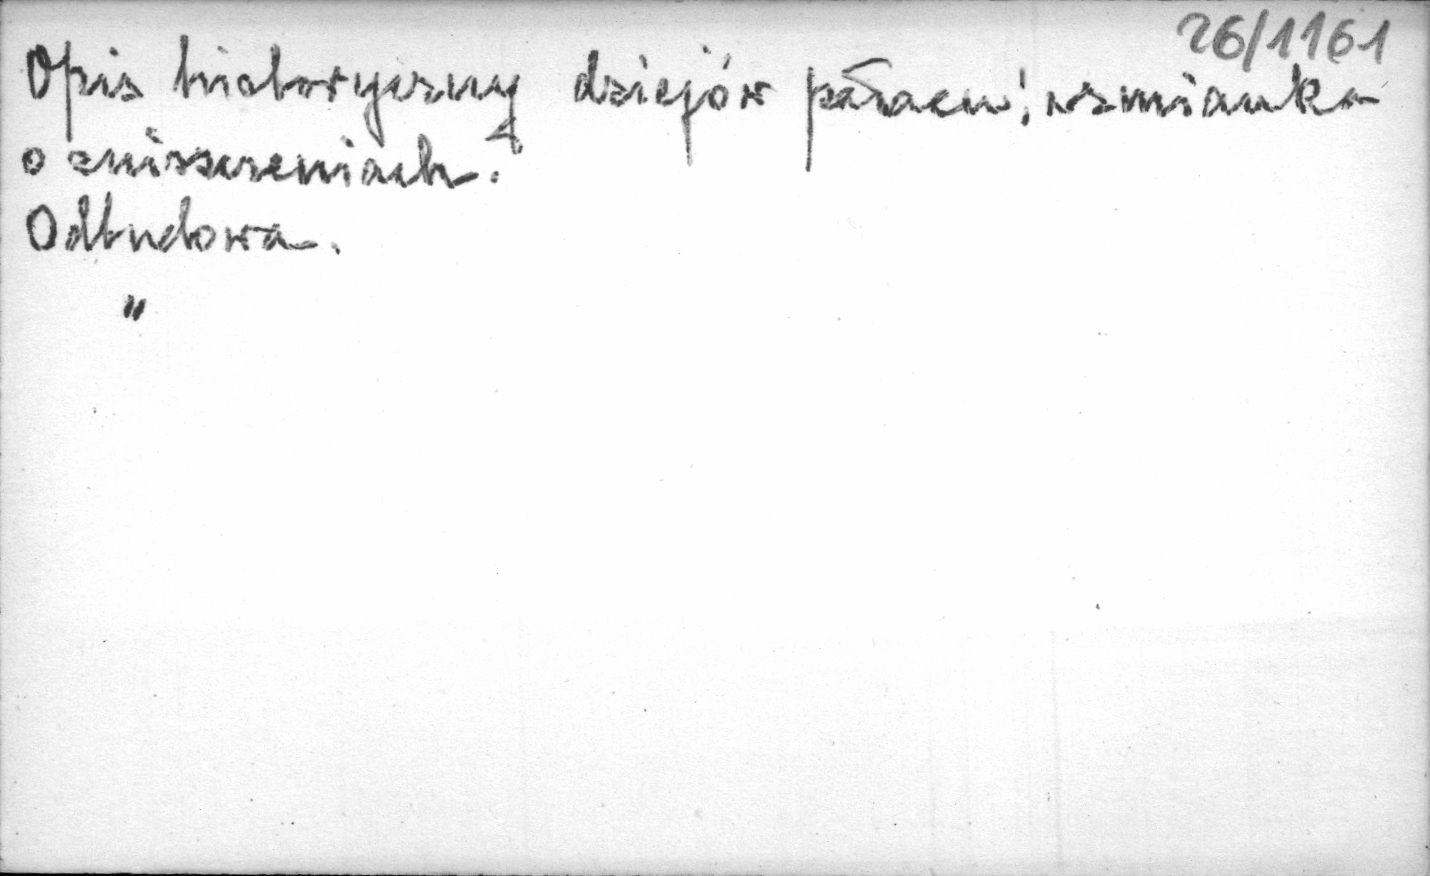 26/1161
Opis historyczny dziejów pałacu; wzmianka
o zniszczeniach.
Odbudowa.
"